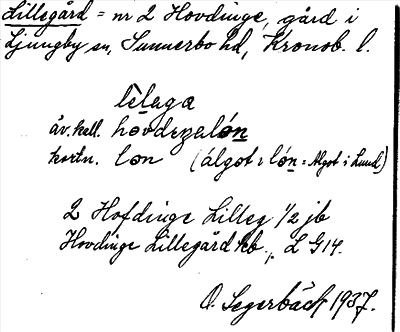 Lillegård = nr 2 Hovdinge, gård i
Ljungby sn, Sunnerbo hd, Kronob. l.
lèlaga
äv. kall. hòvdeŋalón
kortn. lon (álgot i lón = Algot i Lund)
2 Hofdinge Lilleg 1/2 jb
Hovdinge Lillegård kb., L G14.
O. Segerbäck 1937.